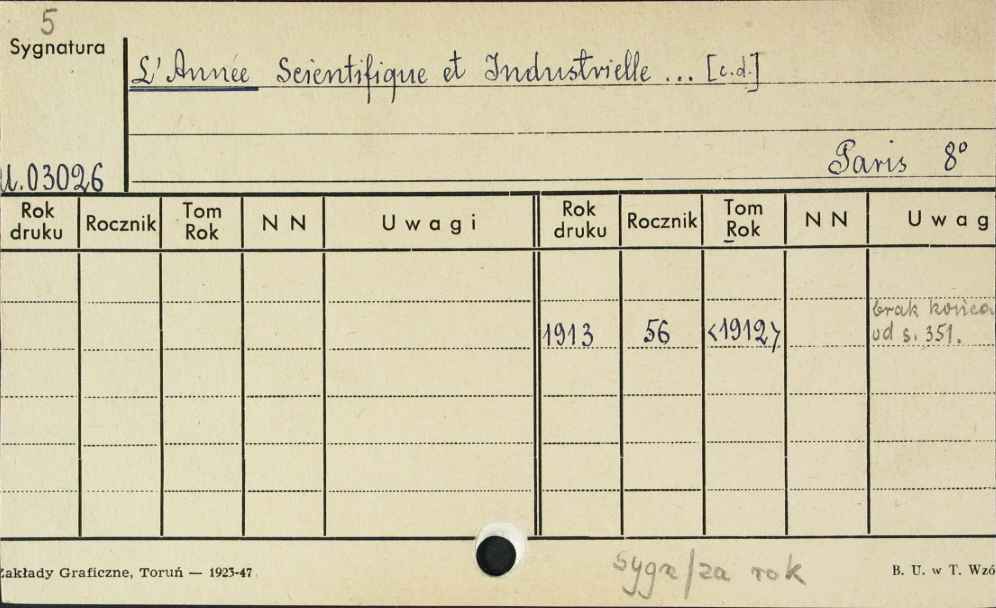 5
Sygnatura
L'Année Scientifique et Industrielle ... [c.d.]
Paris 8°
U.03026
Rok druku Rocznik Tom Rok N N Uwagi Rok druku Rocznik Tom Rok N N Uwag
1913 56 <1912> brak końca
od s. 351.
sygn/za rok
Zakłady Graficzne, Toruń — 1923-47 B. U. w T. Wzó